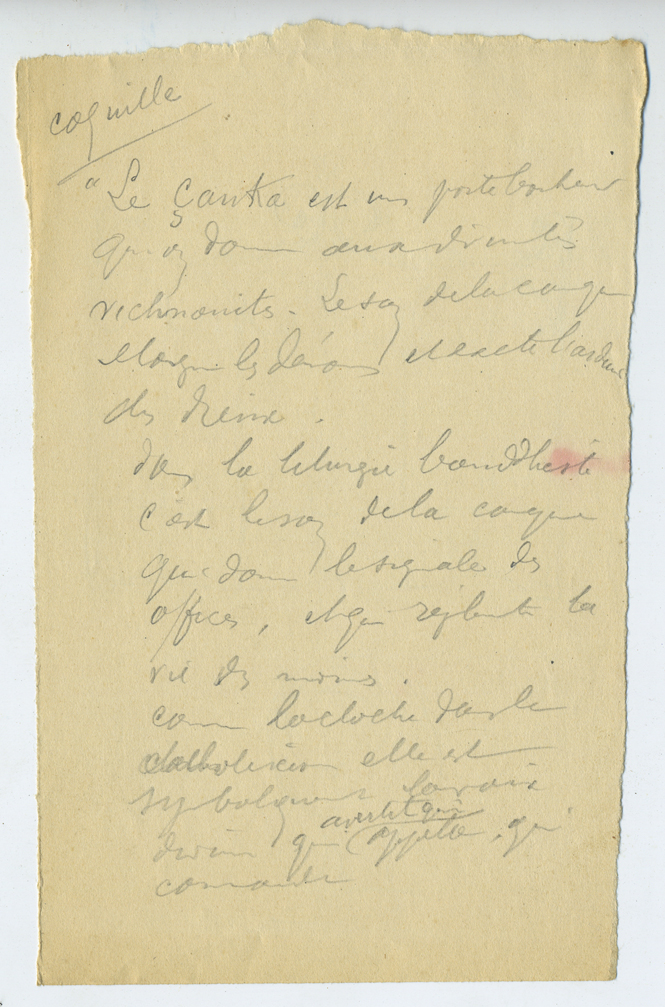 coquille
"Le çanka est un porte bonheur
qu'on donne aux divinités
vichnouites. Le son de la conque
éloigne les démons et excite l'ardeur
des dieux.
dans la liturgie bouddhiste
c'est le son de la conque
qui donne le signale des
offices, et qui règlente la
vie des moines.
comme la cloche dans le
catholicisme elle est
symboliquement la voix
avertit qui
divine qui appelle, qui
commande